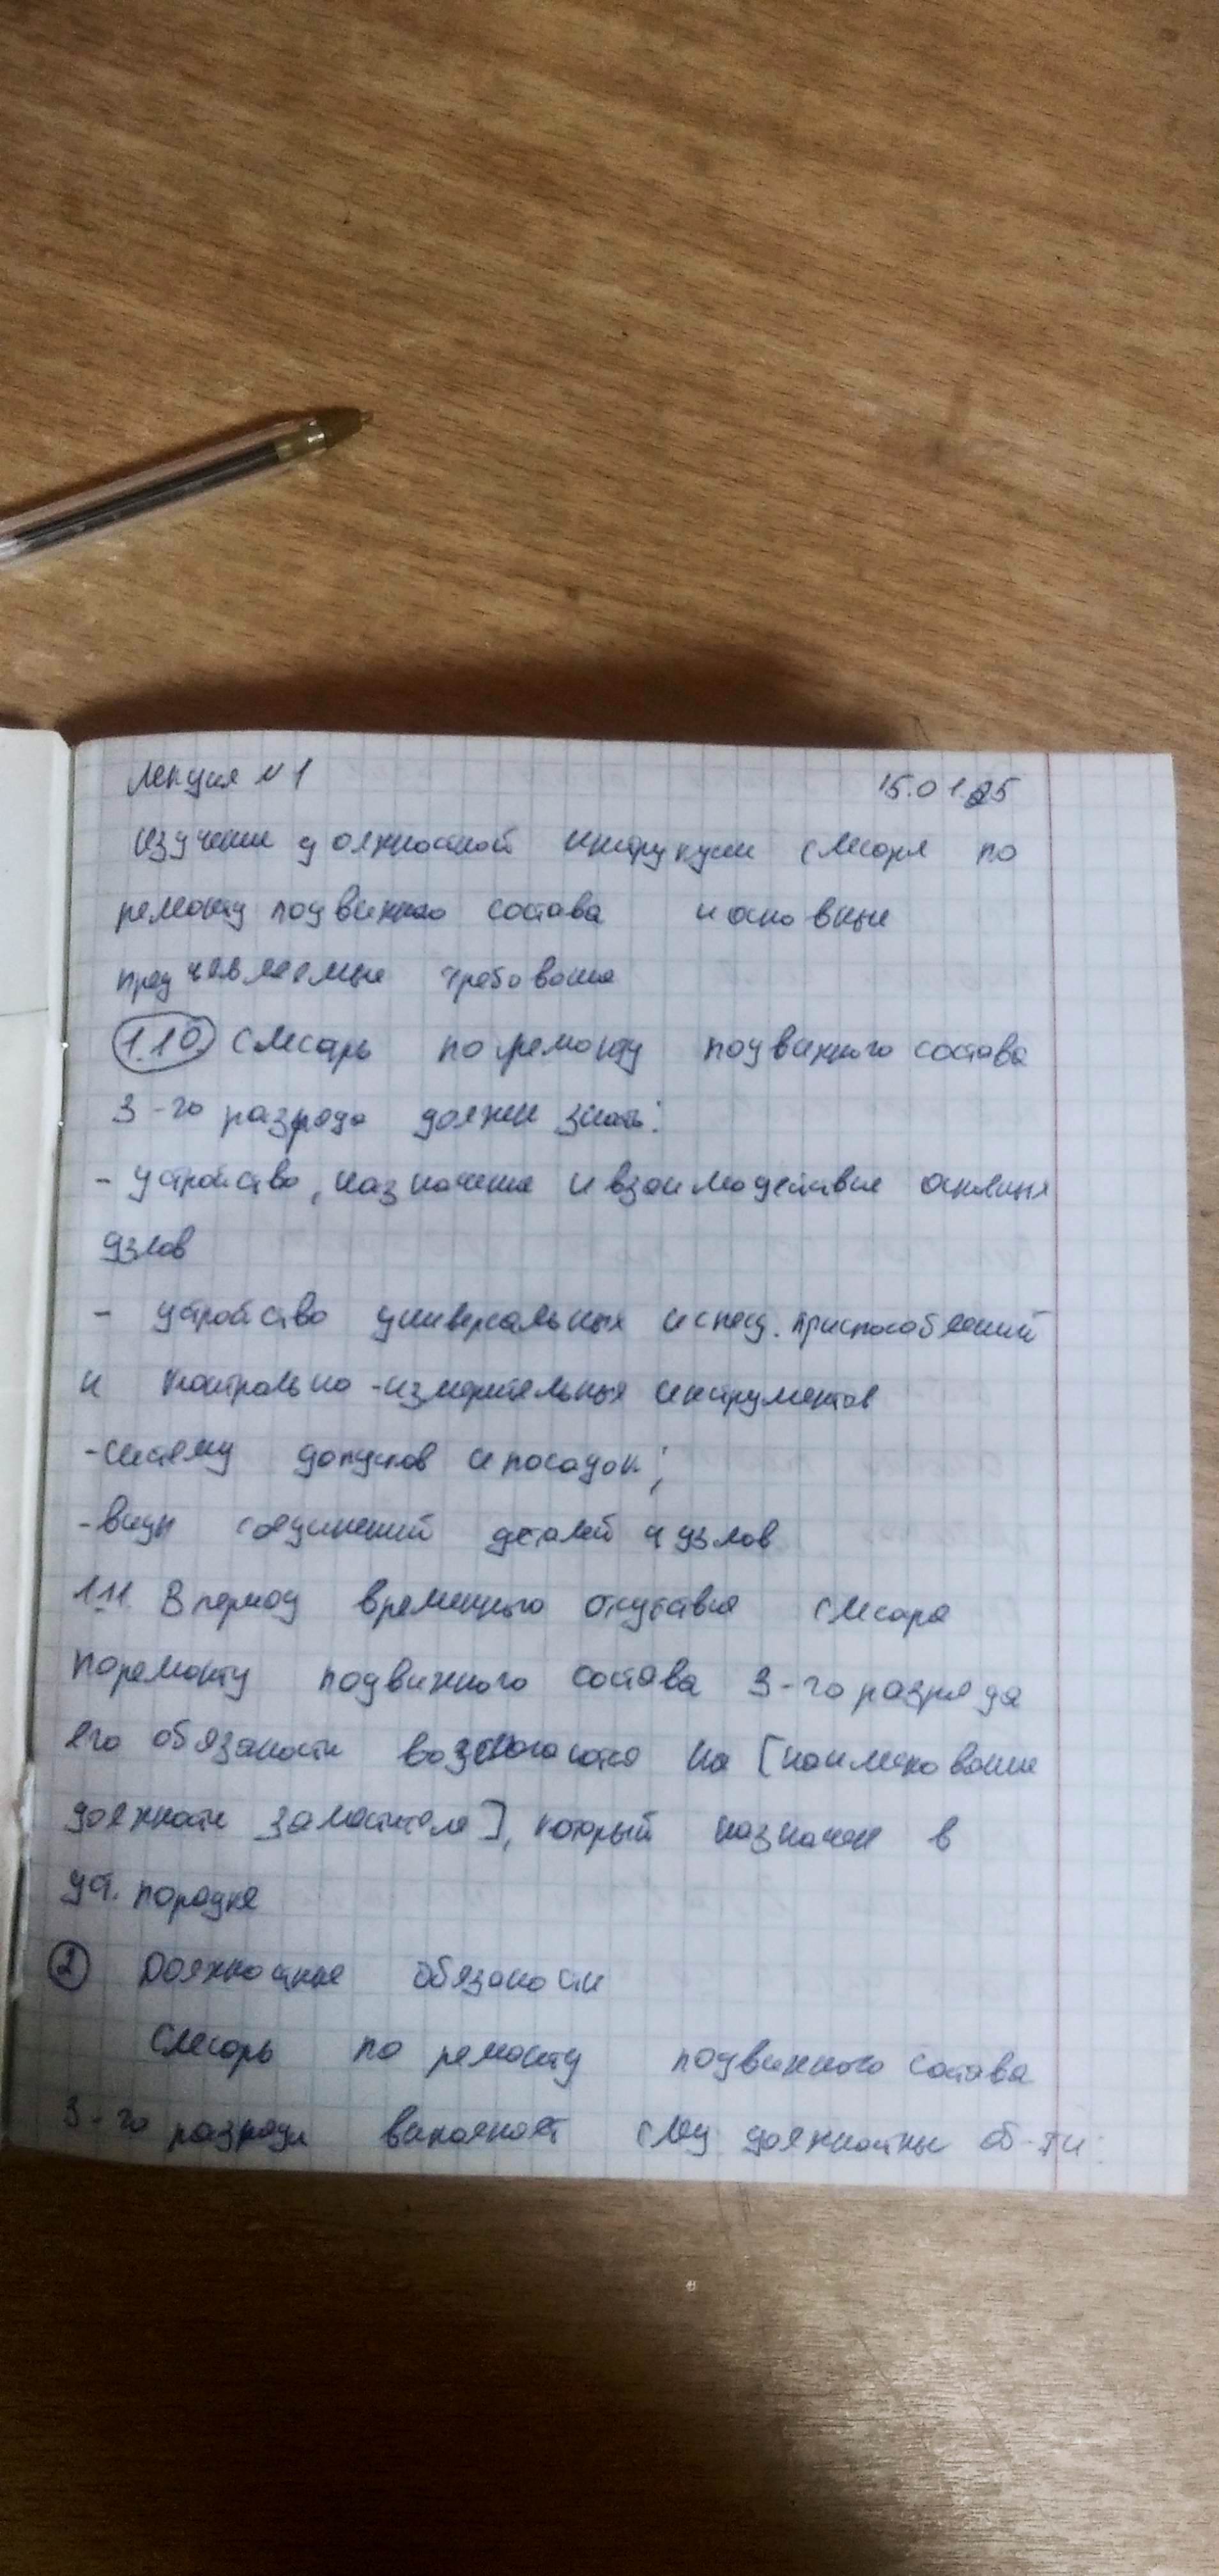 Лекция №1 15.01.25
Изучение должностной инструкции слесаря по
ремонту подвижного состава и основные
предъявляемые требования
1.10 Слесарь по ремонту подвижного состава
3-го разряда должен знать:
- устройство, назначение и взаимодействие основных
узлов
- устройство универсальных и спец. приспособлений
и контрольно-измерительных инструментов
- систему допусков и посадок;
- виды соединений деталей и узлов
1.11. В период временного отсутствия слесаря
по ремонту подвижного состава 3-го разряда
его обязаности возлогаются на [наименование
должности заместителя], который назначен в
уст. порядке
2 Должностные обязаности
Слесарь по ремонту подвижного состава
3-го разряда выполняет след должностные об-ти: